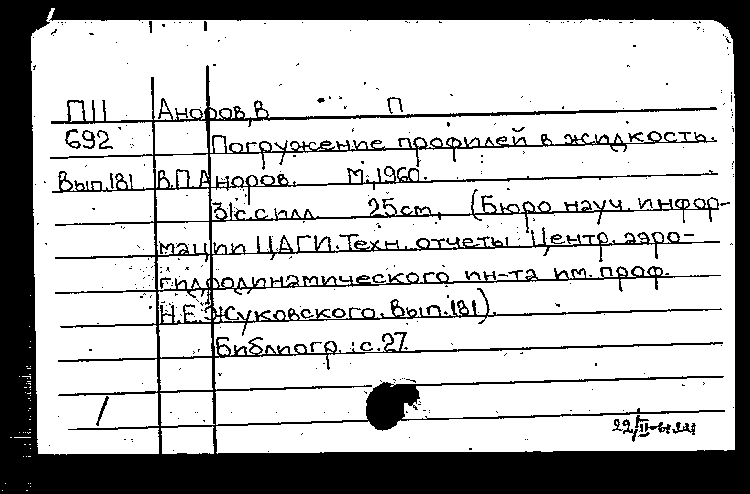 П11 Аноров, В П
692 Погружение профилей в жидкость.
Вып.181 В.П.Аноров. М., 1960.
31с.силл 25cm, (Бюро науч. инфор-
мации ЦАГИ. Техн. отчеты Центр. аэро-
гидродинамического ин-та им. проф.
Н.Е.Жуковского. Вып.181).
Библиогр.: с.27.